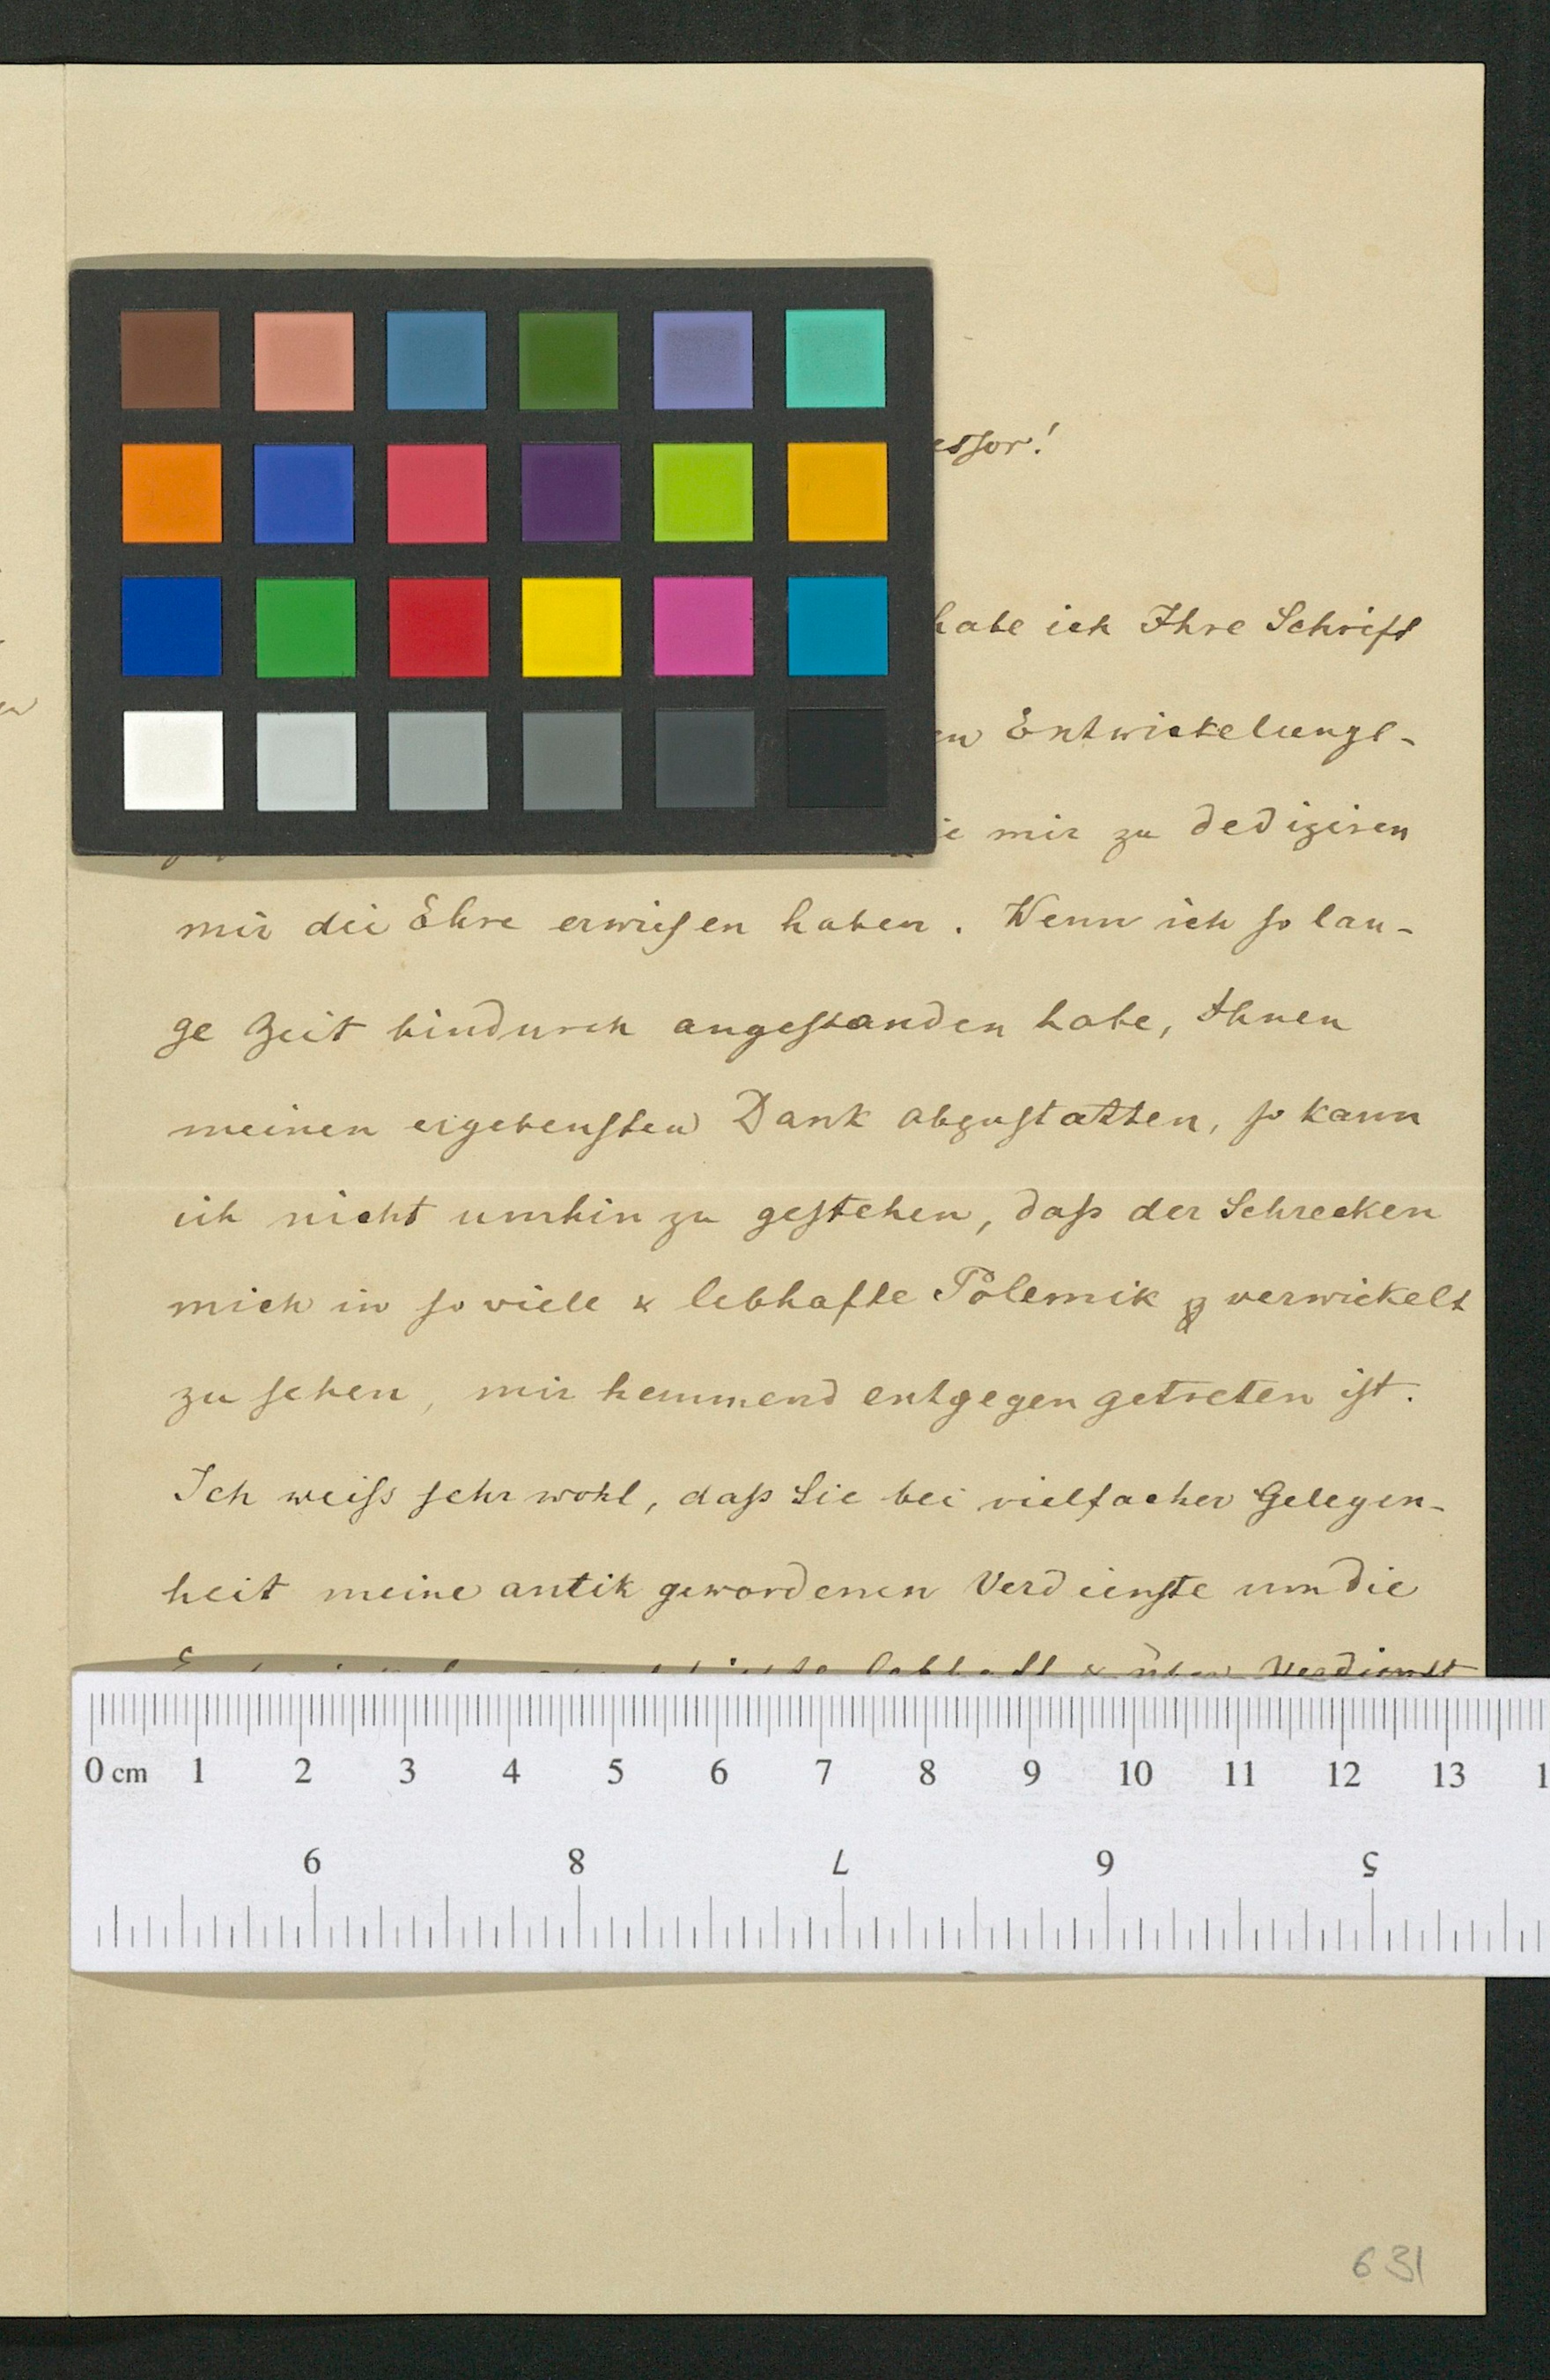 habe ich Ihre Schrift
Entwickelungs-
mir zu dediziren
mir die Ehre erwiesen haben. Wenn ich so lan-
ge Zeit hindurch angestanden habe, Ihnen
meinen ergebensten Dank abzustatten, so kann
ich nicht umhin zu gestehen, dass der Schrecken
mich in so viele & lebhafte Polemik verwickelt
zu sehen, mir hemmend entgegen getreten ist.
Ich weiss sehr wohl, dass Sie bei vielfacher Gelegen-
heit meine antik gewordenen Verdienste um die
lebhaft & über Verdienst
0 cm 1 2 3 4 5 6 7 8 9 10 11 12 13 1
9 8 7 6 5
631